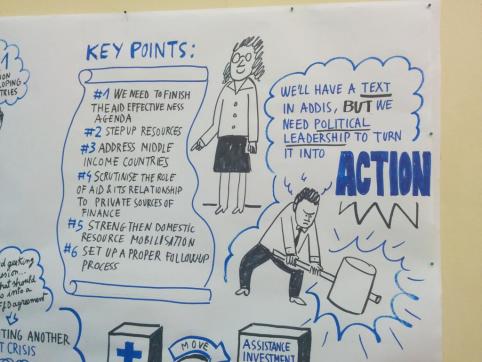 KEY POINTS:
#1 WE NEED TO FINISH
THE AID EFFECTIVENESS
AGENDA
#2 STEP UP RESOURCES
#3 ADDRESS MIDDLE
INCOME COUNTRIES
#4 SCRUTINISE THE ROLE
OF AID & ITS RELATIONSHIP
TO PRIVATE SOURCES OF
FINANCE
#5 STRENGTHEN DOMESTIC
RESOURCE MOBILISATION
#6 SET UP A PROPER FOLLOWUP
PROCESS
WE'LL HAVE A TEXT
IN ADDIS, BUT WE
NEED POLITICAL
LEADERSHIP TO TURN
IT INTO
ACTION
into a
agreement
ANOTHER
CRISIS
MOVE
ASSISTANCE
INVESTMENT